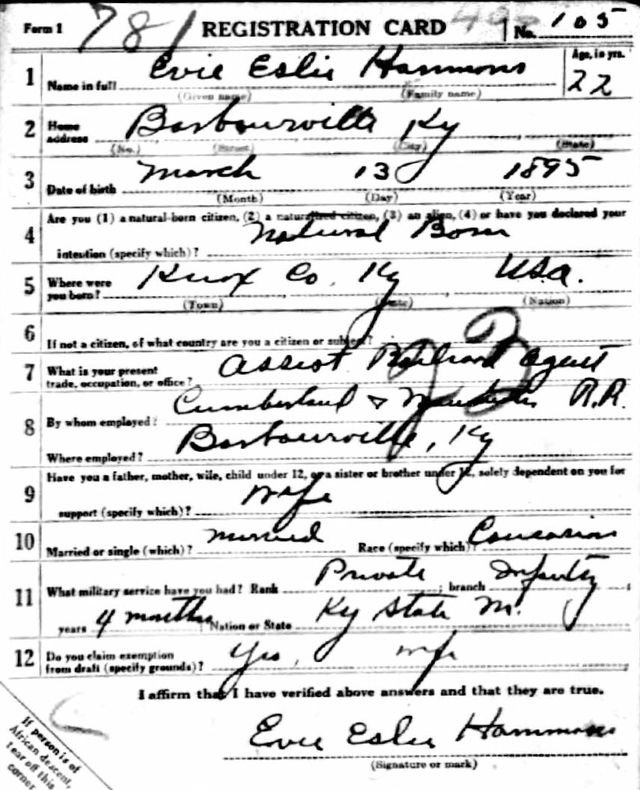 Form 1 781 REGISTRATION CARD No. 105
1 Name in full Evie Eslie Hammons Age, in yrs. 22
(Given name) (Family name)
2 Home address Barbourville Ky
(No.) (Street) (City) (State)
3 Date of birth March 13 1895
(Month) (Day) (Year)
4 Are you (1) a natural-born citizen, (2) a naturalized citizen, (3) an alien, (4) or have you declared your
intention (specify which)? Natural Born
5 Where were you born? Knox Co, Ky U.S.a.
(Town) (State) (Nation)
6 If not a citizen, of what country are you a citizen or subject?
7 What is your present trade, occupation, or office? assist Railroad agent 23
8 By whom employed? Cumberland & Manchester R.R.
Where employed? Barbourville, Ky
9 Have you a father, mother, wife, child under 12, or a sister or brother under 12, solely dependent on you for
support (specify which)? wife
10 Married or single (which)? married Race (specify which)? Caucasian
11 What military service have you had? Rank Private ; branch Infantry ;
years 4 months ; Nation or State Ky State M.
12 Do you claim exemption from draft (specify grounds)? Yes, wife
I affirm that I have verified above answers and that they are true.
Evie Eslie Hammons
(Signature or mark)
If person is of
African descent,
tear off this
corner